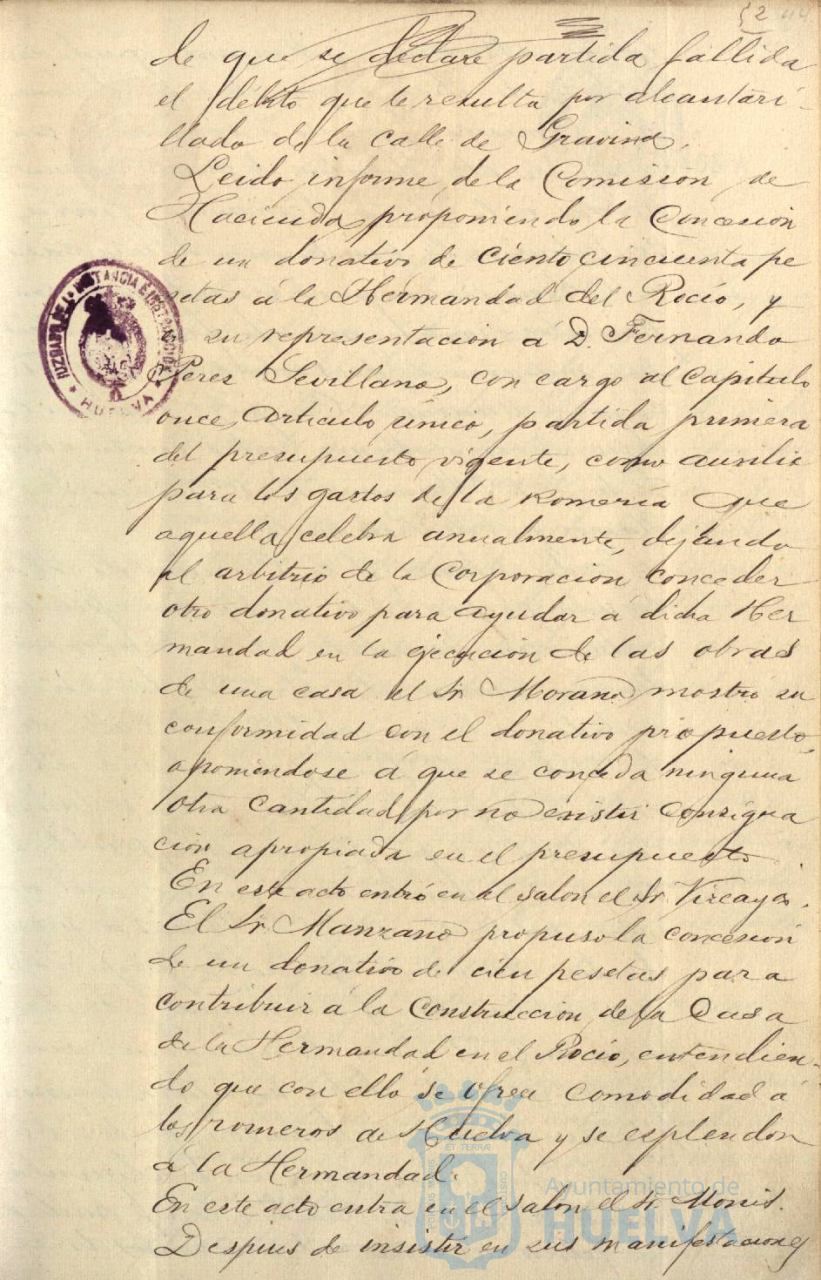 52 44
de que se declare partida fallida
el debito que le resulta por alcantari-
llado de la calle de Gravina.
Leido informe de la Comision de
Hacienda proponiendo la Concesion
de un donativo de ciento cincuenta pe
setas á la Hermandad del Rocio, y
su representacion á D. Fernando
Perez Sevillano, con cargo al Capitulo
once, Articulo único, partida primera
del presupuesto vigente, como auxilio
para los gastos de la Romeria que
aquella celebra anualmente, dejando
al arbitrio de la Corporacion conceder
otro donativo para ayudar á dicha Her
mandad en la ejecucion de las obras
de una casa el Sr. Morano mostró su
conformidad con el donativo propuesto,
oponiendose á que se conceda ninguna
otra cantidad por no existir consigna
cion apropiada en el presupuesto.
En este acto entró en el salon el Sr. Vizcaya.
El Sr. Manzano propuso la concesion
de un donativo de cien pesetas para
contribuir á la Construccion de la Casa
de la Hermandad en el Rocio, entendien-
do que con ello se ofrece comodidad á
los romeros de Huelva y se esplendor
á la Hermandad.
En este acto entra en el salon el Sr. Monis.
Despues de insistir en sus manifestaciones
JUZGADO DE 1ª INSTANCIA E INSTRUCCION
HUELVA
Ayuntamiento de
HUELVA